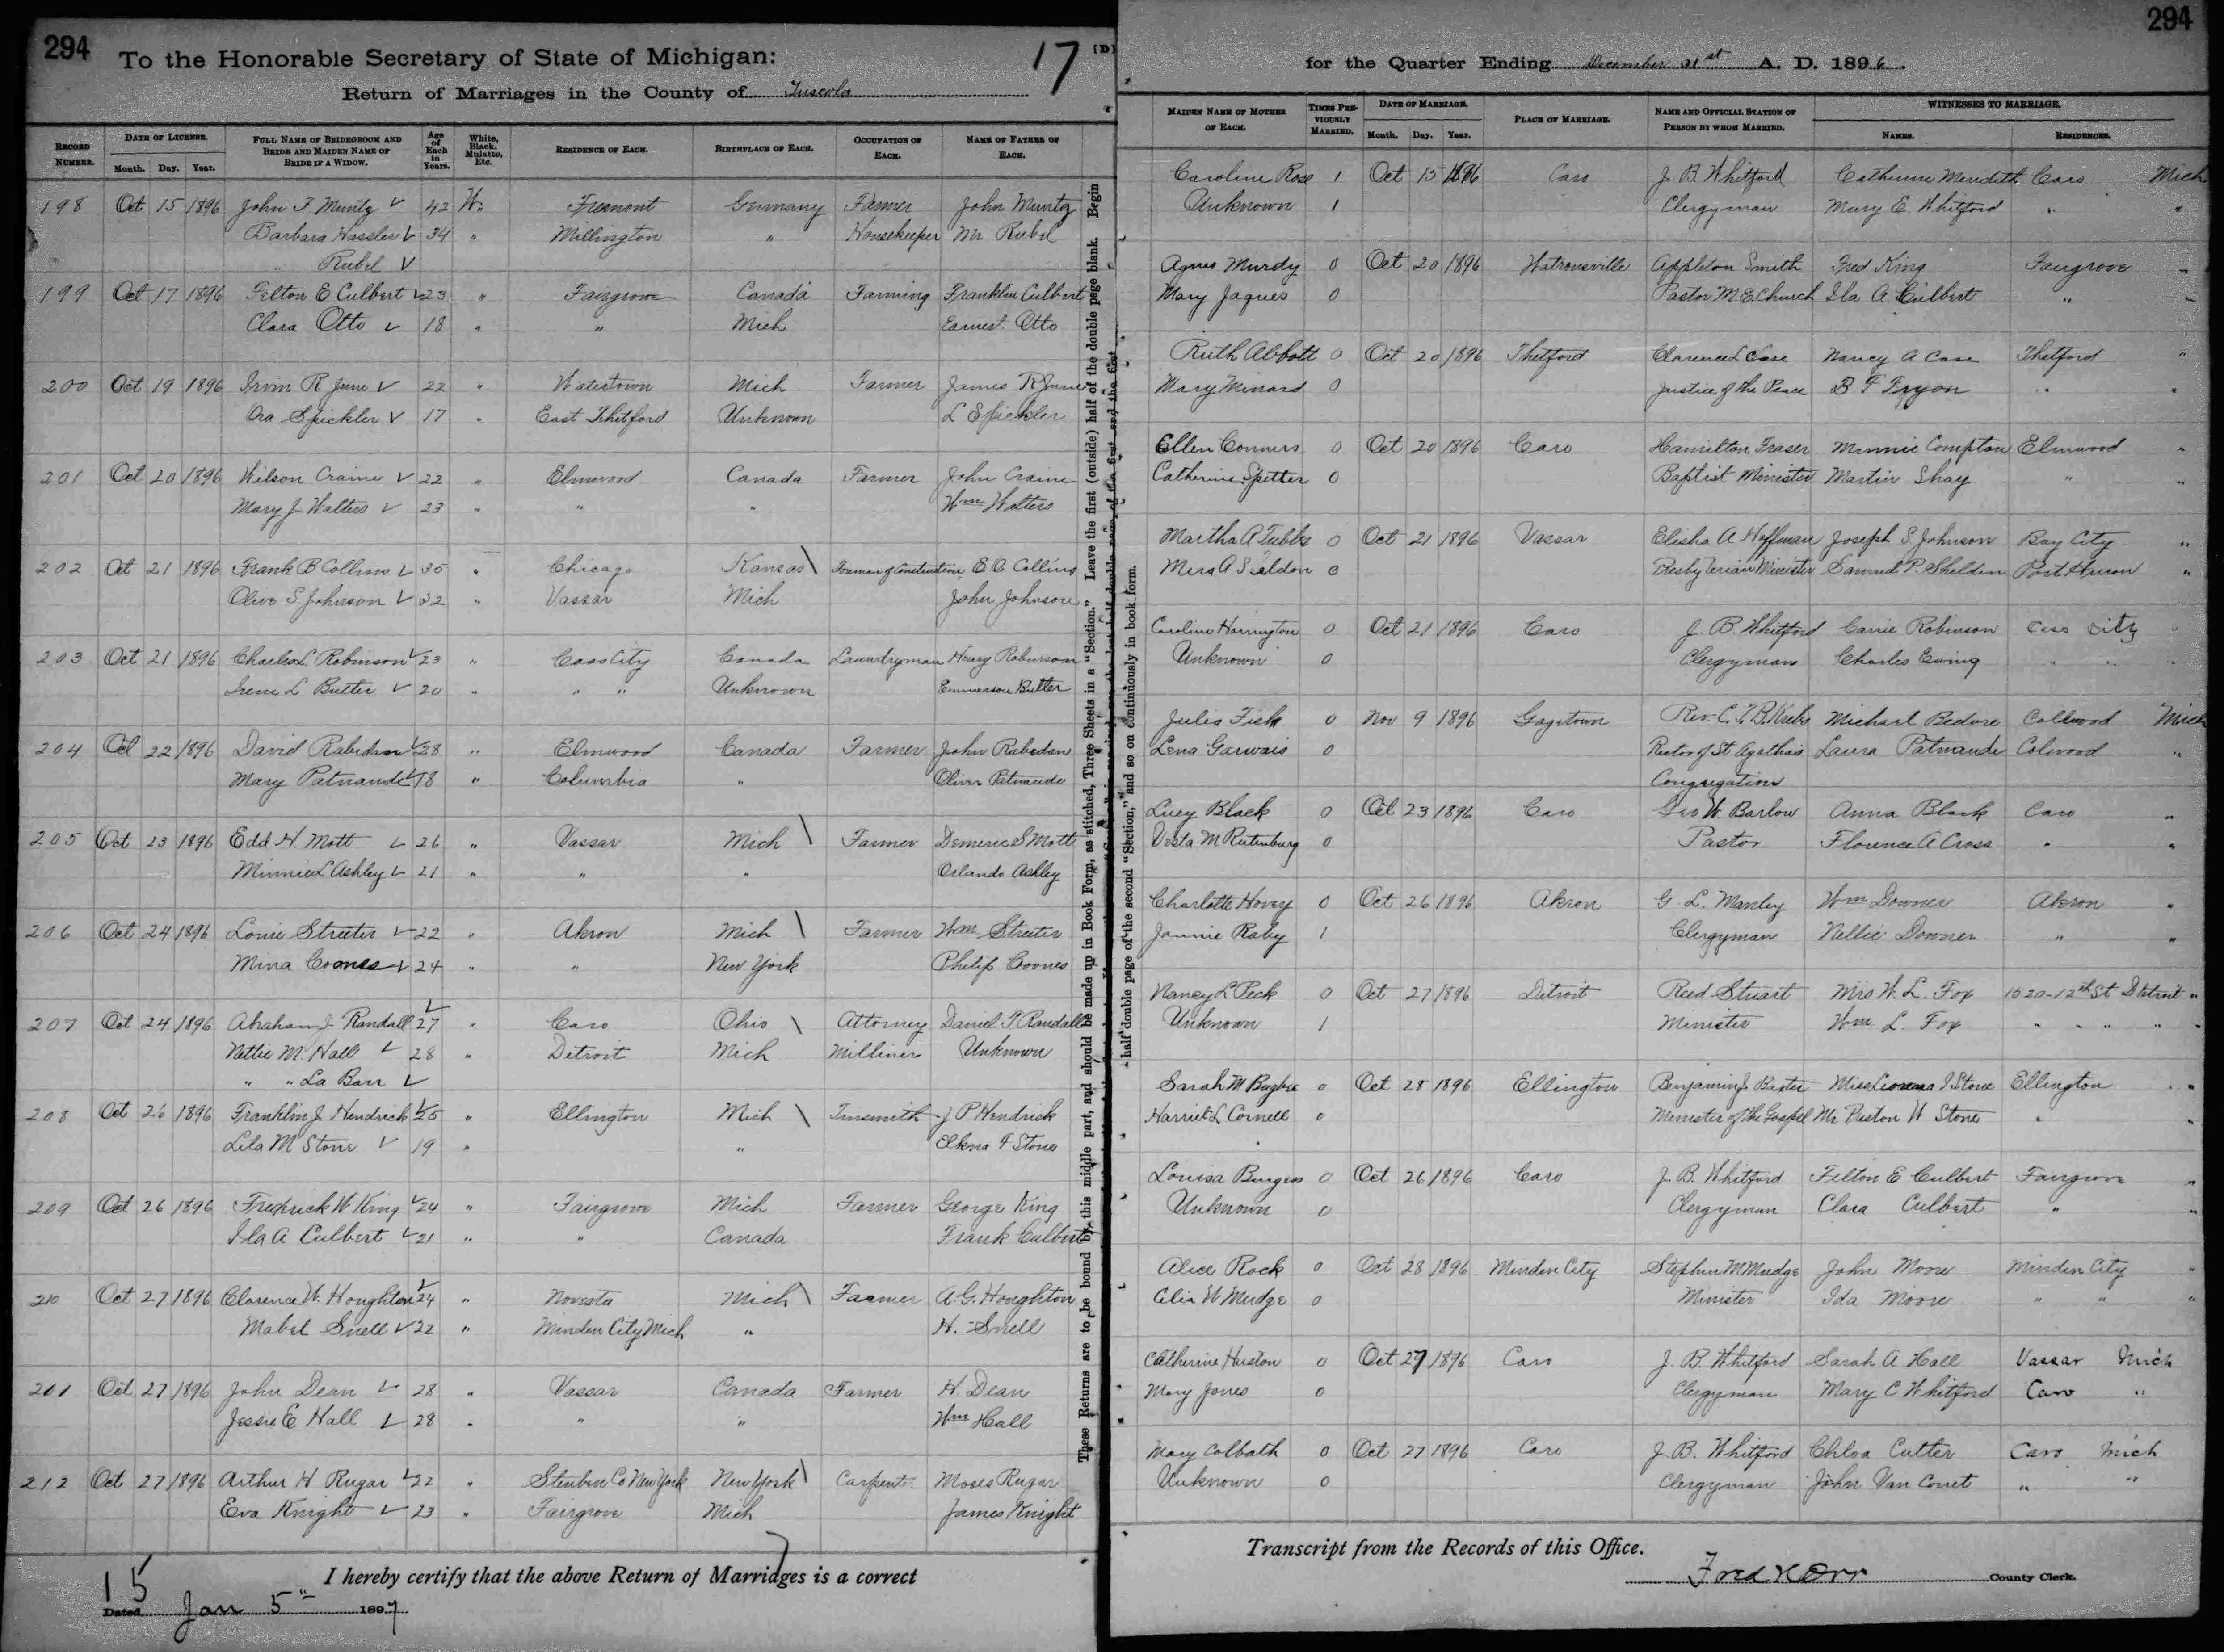 294
To the Honorable Secretary of State of Michigan:
17
[D]
Return of Marriages in the County of Tuscola
RECORD NUMBER. DATE OF LICENSE. Month. Day. Year. FULL NAME OF BRIDEGROOM AND BRIDE AND MAIDEN NAME OF BRIDE IF A WIDOW. Age of Each in Years. White, Black, Mulatto, Etc. RESIDENCE OF EACH. BIRTHPLACE OF EACH. OCCUPATION OF EACH. NAME OF FATHER OF EACH.
198 Oct 15 1896 John F Muntz 42 W. Fremont Germany Farmer John Muntz
Barbara Hassler 34 " Millington " Housekeeper Mr Rubel
" Rubel
199 Oct 17 1896 Felton E Culbert 23 " Fairgrove Canada Farming Franklin Culbert
Clara Otto 18 " " Mich Earnest Otto
200 Oct 19 1896 Irvin R June 22 " Watertown Mich Farmer James R June
Ora Spickler 17 " East Thetford Unknown L Spickler
201 Oct 20 1896 Wilson Craine 22 " Elmwood Canada Farmer John Craine
Mary J Walters 23 " " " Wm Walters
202 Oct 21 1896 Frank B Collins 35 " Chicago Kansas Foreman of Construction E. B. Collins
Olive S Johnson 32 " Vassar Mich John Johnson
203 Oct 21 1896 Charles L Robinson 23 " Cass City Canada Laundryman Henry Robinson
Irene L Butler 20 " " " Unknown Emmerson Butler
204 Oct 22 1896 David Rabidan 28 " Elmwood Canada Farmer John Rabidan
Mary Patnaude 18 " Columbia " Oliver Patnaude
205 Oct 23 1896 Edd H. Mott 26 " Vassar Mich Farmer S Mott
Minnie L Ashley 21 " " " Orlando Ashley
206 Oct 24 1896 Louie Streeter 22 " Akron Mich Farmer Wm Streeter
Mina Coones 24 " " New York Philip Coones
207 Oct 24 1896 Abraham J Randall 27 " Caro Ohio Attorney Daniel T. Randall
Nettie M. Hall 28 " Detroit Mich Milliner Unknown
" " La Barr
208 Oct 26 1896 Franklin J Hendrick 25 " Ellington Mich Tinsmith J P Hendrick
Lila M Stone 19 " " Elkna F Stone
209 Oct 26 1896 Fredrick W King 24 " Fairgrove Mich Farmer George King
Ila A Culbert 21 " " Canada Frank Culbert
210 Oct 27 1896 Clarence W. Houghton 24 " Novesta Mich Farmer A. G. Houghton
Mabel Snell 22 " Minden City Mich " H. Snell
211 Oct 27 1896 John Dean 28 " Vassar Canada Farmer H. Dean
Jessie E Hall 28 " " " Wm Hall
212 Oct 27 1896 Arthur H Rugar 22 " Steuben Co New York New York Carpent Moses Rugar
Eva Knight 23 " Fairgrove Mich James Knight
I hereby certify that the above Return of Marriages is a correct
15
Dated Jan 5th 1897
These Returns are to be bound by this middle part, and should be made up in Book Form, as stitched, Three Sheets in a "Section." Leave the first (outside) half of the double page blank. Begin
half double page of the second "Section," and so on continuously in book form.
294
for the Quarter Ending December 31st A. D. 1896.
MAIDEN NAME OF MOTHER OF EACH. TIMES PREVIOUSLY MARRIED. DATE OF MARRIAGE. Month. Day. Year. PLACE OF MARRIAGE. NAME AND OFFICIAL STATION OF PERSON BY WHOM MARRIED. WITNESSES TO MARRIAGE. NAMES. RESIDENCES.
Caroline Rose 1 Oct 15 1896 Caro J. B. Whitford Catherine Meredith Caro Mich
Unknown 1 Clergyman Mary E. Whitford " "
Agnes Murdy 0 Oct 20 1896 Watrousville Appleton Smith Fred King Fairgrove "
Mary Jaques 0 Pastor M. E. Church Ila A Culbert " "
Ruth Abbott 0 Oct 20 1896 Thetford Clarence L Case Nancy A Case Thetford "
Mary Minard 0 Justice of the Peace B F Tryon " "
Ellen Conners 0 Oct 20 1896 Caro Hamilton Fraser Minnie Compton Elmwood "
Catherine Spitter 0 Baptist Minister Martin Shay " "
Martha A Tubbs 0 Oct 21 1896 Vassar Elisha A Hoffman Joseph S Johnson Bay City "
Mira A Seeldon 0 Presbyterian Minister Samuel P. Sheldon Port Huron "
Caroline Harrington 0 Oct 21 1896 Caro J. B. Whitford Carrie Robinson Cass City "
Unknown 0 Clergyman Charles Ewing " " "
Julia Fisk 0 Nov 9 1896 Gagetown Rev. C. T. B. Krebs Michael Bedore Collwood Mich
Lena Garvais 0 Rector of St Agatha's Laura Patnaude Colwood "
Congregation
Lucy Black 0 Oct 23 1896 Caro Geo W. Barlow Anna Black Caro "
Vesta M Rutenburg 0 Pastor Florence A Cross " "
Charlotte Hovey 0 Oct 26 1896 Akron G. L. Manley Wm Downer Akron "
Jennie Raby 1 Clergyman Nellie Downer " "
Nancy L Peck 0 Oct 27 1896 Detroit Reed Stuart Mrs W. L. Fox 1520-12th St Detroit "
Unknown 1 Minister Wm. L. Fox " " " " "
Sarah M Bugbee 0 Oct 28 1896 Ellington Benjamin J Baxter Miss Leorena I Stone Ellington "
Harriet L Cornell 0 Minister of the Gospel Mr Preston W Stone " "
Louisa Burgess 0 Oct 26 1896 Caro J. B. Whitford Felton E Culbert Fairgrove "
Unknown 0 Clergyman Clara Culbert " "
Alice Rock 0 Oct 28 1896 Minden City Stephen M Mudge John Moore Minden City "
Celia W Mudge 0 Minister Ida Moore " " "
Catherine Huston 0 Oct 27 1896 Caro J. B. Whitford Sarah A Hall Vassar Mich
Mary Jones 0 Clergyman Mary C Whitford Caro "
Mary Colbath 0 Oct 27 1896 Caro J. B. Whitford Chloa Cutter Caro Mich
Unknown 0 Clergyman John Van Conet " "
Transcript from the Records of this Office.
Fred K Orr County Clerk.